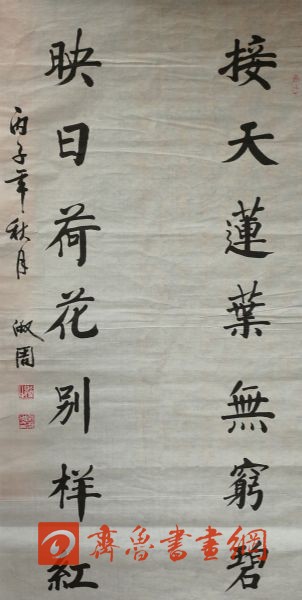 接天蓮葉無窮碧
映日荷花別样紅
丙子年秋月
淑周
齊魯書畫網